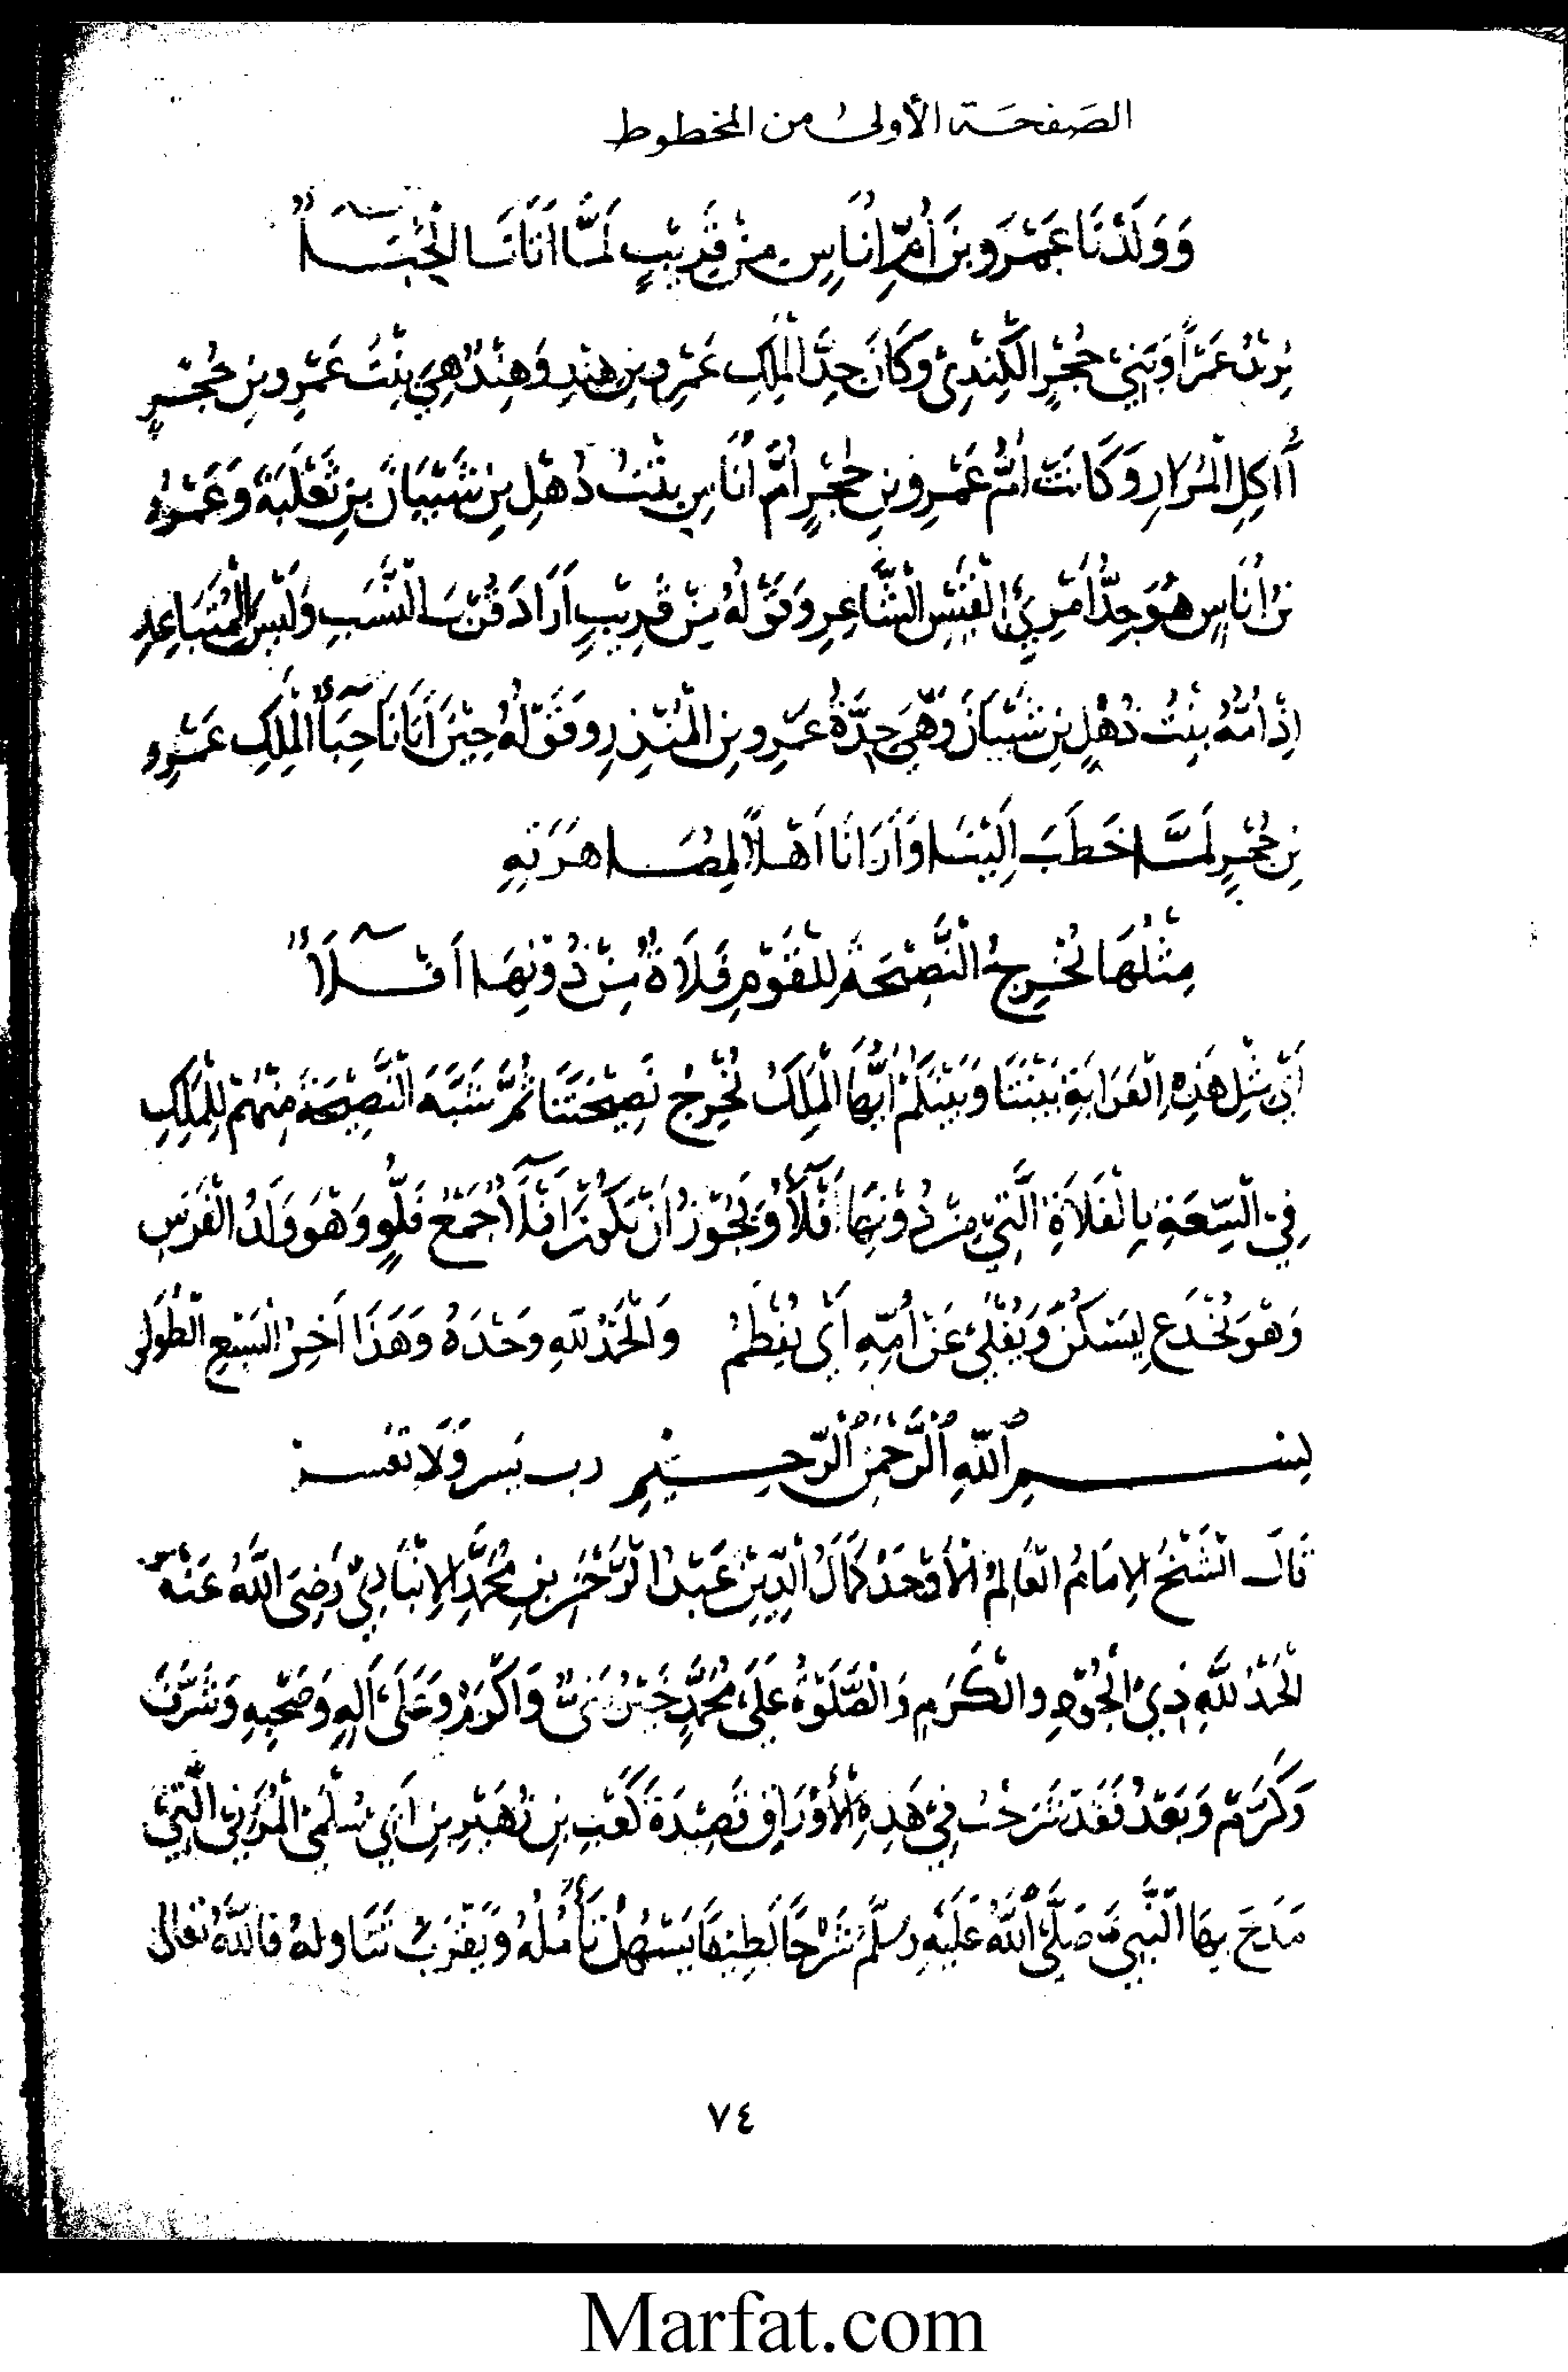 الصَفحَة الأولىٰ من المخطوط
وَوَلَدْنَا عَمْرَو بنَ أُمِّ اُنَاسٍ مِنْ قَرِيْبٍ لَمَّا اَتَانَا الْحِبَاءُ
يُرِيْدُ عَمْرًا وَبَنِيْ حُجْرٍ الْكِنْدِيْ وَكَانَ جَدَّ الْمَلِكِ عَمْرِو بنِ هِنْدٍ وَهِنْدٌ هِيَ بِنْتُ عَمْرِو بنِ حُجْرٍ
أَاكِلِ الْمُرَارِ وَكَانَتْ اُمُّ عَمْرِو بنِ حُجْرٍ اُمَّ اُنَاسٍ بِنْتَ ذُهْلِ بنِ شَيْبَانَ بنِ ثَعْلَبَةَ وَعَمْرُو
بنُ اُنَاسٍ هُوَ جَدُّ امْرِئِ الْقَيْسِ الْشَّاعِرِ وَقَوْلُهُ مِنْ قَرِيْبٍ اَرَادَ قُرْبَ الْنَّسَبِ وَلَيْسَ الْمُتَبَاعِدِ
اِذِ اُمُّهُ بِنْتُ ذُهْلِ بنِ شَيْبَانَ وَهِيَ جَدَّةُ عَمْرِو بنِ الْمُنْذِرِ وَقَوْلُهُ حِيْنَ اَتَانَا حِبَآءُ الْمَلِكِ عَمْرِو
بنِ حُجْرٍ لَمَّا خَطَبَ اِلَيْنَا وَاَرَانَا اَهْلاً لِمُصَاهَرَتِهِ
مِثْلُهَا تُخْرِجُ الْنَّصِيْحَةَ لِلْقَوْمِ فَلَاةٌ مِنْ دُوْنِهَا اَفْلَآءُ
اَيْ مِثْلُ هَذِهِ الْقَرَابَةِ بَيْنَنَا وَبَيْنَكُمْ اَيُّهَا الْمَلِكُ تُخْرِجُ نَصِيْحَتَنَا ثُمَّ شَبَّهَ الْنَّصِيْحَةَ مِنْهُمْ لِلْمَلِكِ
فِيْ الْسِّعَةِ بِالْفَلَاةِ الَّتِيْ مِنْ دُوْنِهَا اَفْلَآءٌ وَيَجُوْزُ اَنْ يَكُوْنَ اَفْلَآءُ جَمْعَ فَلُوٍّ وَهُوَ وَلَدُ الْفَرَسِ
وَهُوَ يُخْدَعُ لِيَسْكُنَ وَيُفْلَىٰ عَنْ اُمِّهِ اَيْ يُفْطَمُ وَالْحَمْدُ للهِ وَحْدَهُ وَهَذَا اَخِرُ الْسَّبْعِ الْطُوَلِ
بِسْمِ اللّٰهِ الْرَّحْمٰنِ الْرَّحِيْمِ رب يَسر وَلَا تعسر
قَالَ الْشَيْخُ الإمَامُ الْعَالِمُ الْأَوْحَدُ كَمَالُ الْدِّيْنِ عَبْدُ الْرَّحْمٰنِ بنِ مُحَمَّدٍ الإنْبَارِيْ رَضِيَ اللَّهُ عَنْهُ
الْحَمْدُ للَّهِ ذِيْ الْجُوْدِ وَالْكَرَمِ وَالْصَّلَوةُ عَلَىٰ مُحَمَّدٍ خَيْرِ نَبِيٍّ وَاَكْرَمِ وَعَلَىٰ اَلِهِ وَصَحْبِهِ وَشَرَّفَ
وَكَرَّمَ وَبَعْدُ فَقَدْ شَرَحْتُ فِيْ هَذِهِ الْأَوْرَاقِ قَصِيْدَةَ كَعْبِ بنِ زُهَيْرِ بنِ اَبِيْ سُلْمَىٰ الْمُزَنِيْ الَّتِيْ
مَدَحَ بِهَا الْنَّبِيَّ صَلَّىٰ اللَّهُ عَلَيْهِ وسَلَّمَ شَرْحًا لَطِيْفًا يَسْهُلُ تَأَمُّلُهُ وَيَقْرُبُ تَنَاوله فاللَّهُ تعالىٰ
٧٤
Marfat.com